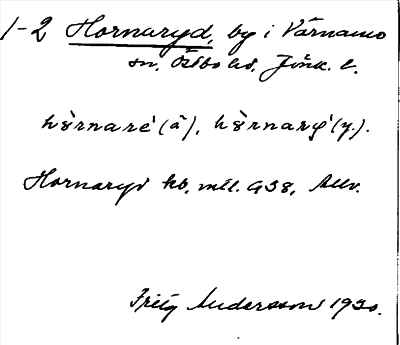 1-2 Hornaryd, by i Värnamo
sn, Östbo hd, Jönk. l.
hòrnaré (ä), hòrnarý (y.).
Hornaryd hd, mtl. 938,
Fritz Andersson 1930.